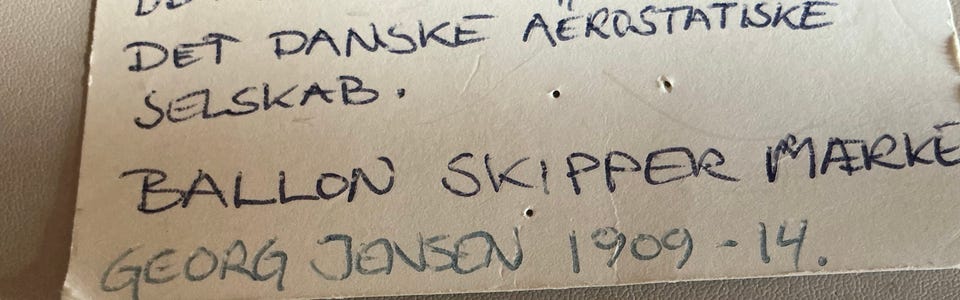 DET DANSKE AËROSTATISKE
SELSKAB.
BALLON SKIPPER MÆRKE
GEORG JENSEN 1909-14.